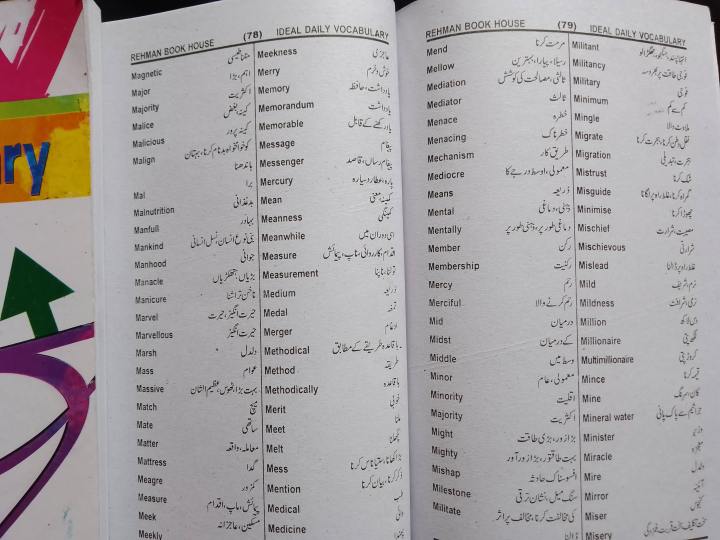 ry
REHMAN BOOK HOUSE (78) IDEAL DAILY VOCABULARY
Magnetic مقناطیسی
Major اہم، بڑا
Majority اکثریت
Malice کینہ، بغض
Malicious کینہ پرور
Malign کو خوامخواہ بدنام کرنا، بہتان
باندھنا
Mal برا
Malnutrition بدغذائی
Manfull بہادر
Mankind بنی نوع انسان، نسل انسانی
Manhood جوانی
Manacle بڑیاں، ہتھکڑیاں
Manicure ناخن تراشنا
Marvel حیرت انگیز، حیرت
Marvellous حیرت انگیز
Marsh دلدل
Mass عوام
Massive بہت بڑا، ٹھوس، عظیم الشان
Match میچ
Mate ساتھی
Matter معاملہ، واقعہ
Mattress گدا
Meagre کمزور
Measure پیمائش، ماپ، اقدام
Meek مسکین، عاجزانہ
Meekly
Meekness عاجزی
Merry خوش و خرم
Memory یادداشت، حافظہ
Memorandum یادداشت
Memorable یاد رکھنے کے قابل
Message پیغام
Messenger پیغام رساں، قاصد
Mercury پارہ، عطارد سیارہ
Mean کمینہ، معنی
Meanness کمینگی
Meanwhile اسی دوران میں
Measure اقدام، کارروائی، ناپ، پیمائش
Measurement تولنا، ناپنا
Medium ذریعہ
Medal تمغہ
Merger ادغام
Methodical باقاعدہ، طریقے کے مطابق
Method طریقہ
Methodically باقاعدہ
Merit خوبی
Meet ملنا
Melt پگھلنا
Mess
Mention ذکر کرنا، بیان کرنا
Medical طب
Medicine
REHMAN BOOK HOUSE (79) IDEAL DAILY VOCABULARY
Mend مرمت کرنا
Mellow رسیلا، پیارا، بہترین
Mediation ثالثی، مصالحت کی کوشش
Mediator ثالث
Menace خطرہ
Menacing خطرناک
Mechanism طریق کار
Mediocre معمولی، اوسط درجے کا
Means ذریعہ
Mental ذہنی، دماغی
Mentally دماغی طور پر، ذہنی طور پر
Member رکن
Membership رکنیت
Mercy رحم
Merciful رحم کرنے والا
Mid درمیان
Midst کے درمیان
Middle وسط میں
Minor معمولی، عام
Minority اقلیت
Majority اکثریت
Might بڑا زور، بڑی طاقت
Mighty بہت طاقتور، بڑا زور آور
Mishap افسوسناک حادثہ
Milestone سنگ میل، نشان ترقی
Militate کی مخالفت کرنا، مخالف پر اثر
ڈالنا
Militant انتہا پسند، جنگجو، جھگڑالو
Militancy فوجی طاقت پر بھروسہ
Military فوجی
Minimum کم سے کم
Mingle ملادٹ، ملانا
Migrate نقل وطن کرنا، ہجرت کرنا
Migration ہجرت، تبدیلی
Mistrust شک کرنا
Misguide گمراہ کرنا، غلط راہ پر لگانا
Minimise چھوٹا کرنا
Mischief مصیبت، شرارت
Mischievous شرارتی
Mislead غلط راہ پر ڈالنا
Mild نرم، شریف
Mildness نرمی، شرافت
Million دس لاکھ
Millionaire لکھ پتی
Multimillionaire کروڑ پتی
Mince قیمہ کرنا
Mine کان، سرنگ
Mineral water جراثیم سے پاک پانی
Minister وزیر
Miracle معجزہ
Mire دلدل
Mirror آئینہ
Miser کنجوس
Misery